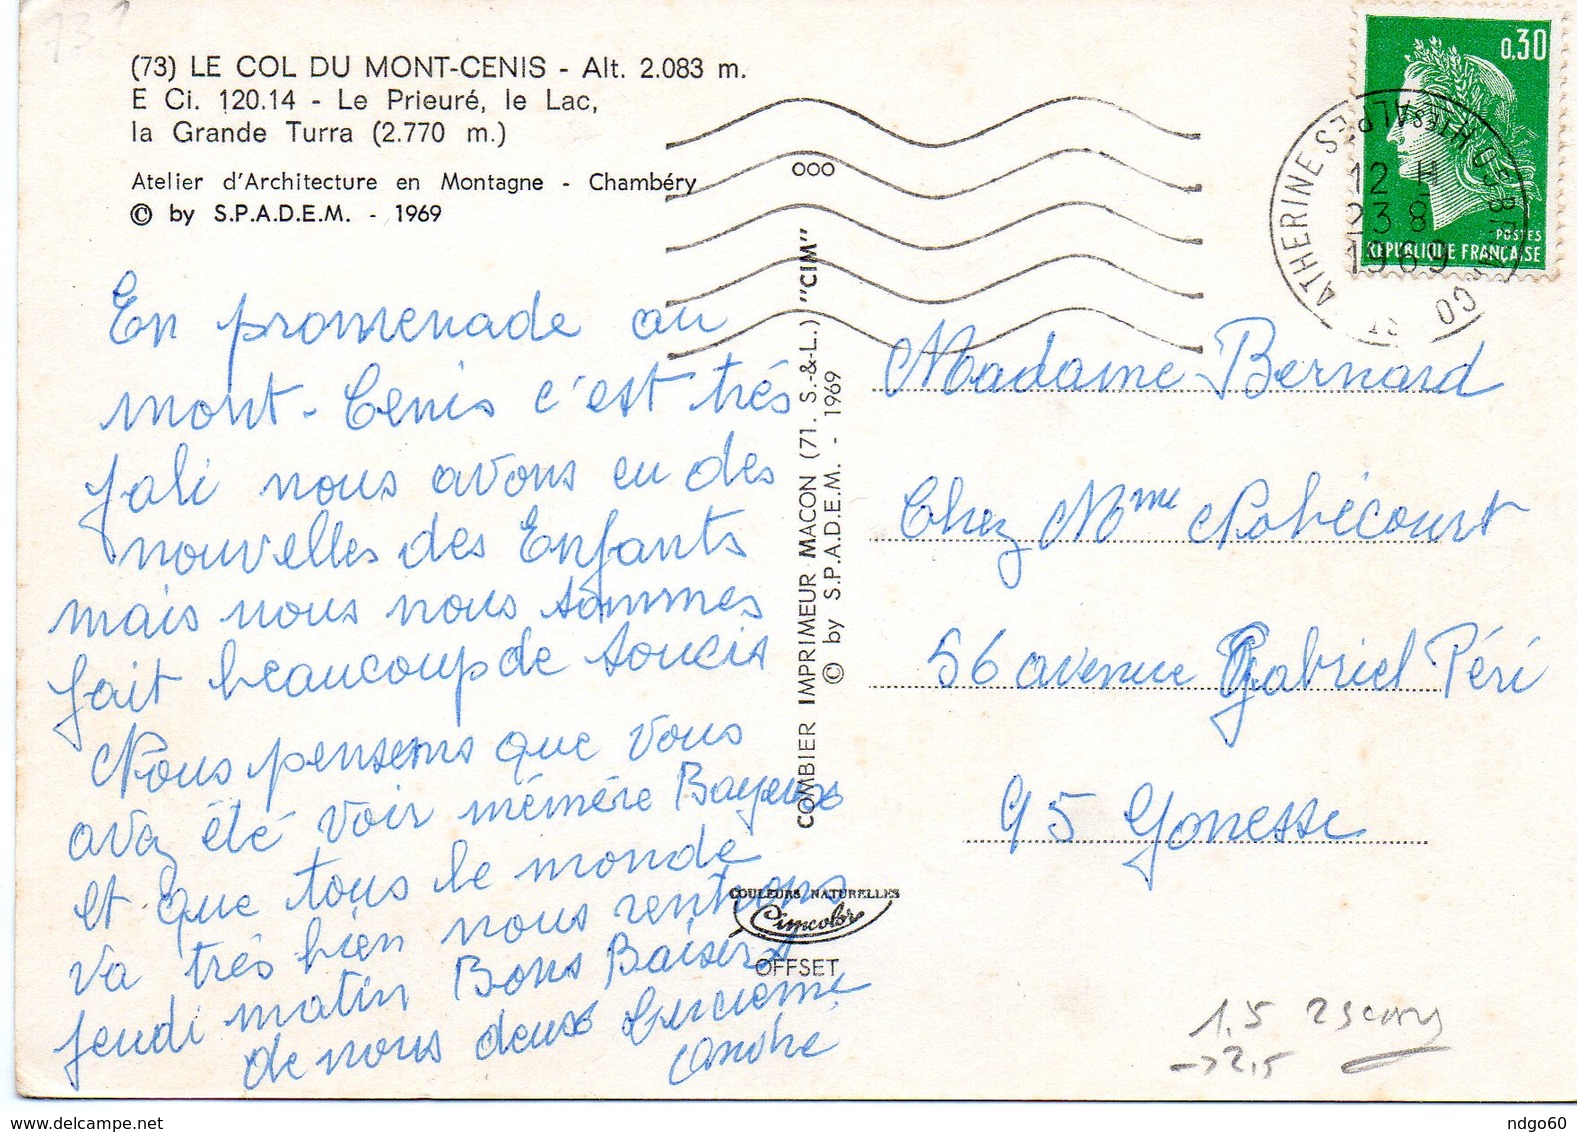 73.
(73) LE COL DU MONT-CENIS - Alt. 2.083 m.
E Ci. 120.14 - Le Prieuré, le Lac,
la Grande Turra (2.770 m.)
Atelier d'Architecture en Montagne - Chambéry
© by S.P.A.D.E.M. - 1969
En promenade au
mont-Cenis c'est trés
Joli nous avons eu des
nouvelles des Enfants
mais nous nous sommes
fait beaucoup de soucis
Nous pensons que vous
avez été voir mémére Bayeux
et que tous le monde
va trés bien nous rentrons
jeudi matin Bons Baisers
de nous deux Lucienne
André
COMBIER IMPRIMEUR MACON (71. S.-&-L.) "CIM"
© by S.P.A.D.E.M. - 1969
COULEURS NATURELLES
Cimcolor
OFFSET
000
0,30
POSTES
REPUBLIQUE FRANÇAISE
12 H
23 8
1969
Madame Bernard
Chez Mme Robécourt
56 avenue Gabriel Péri
95 Gonesse
1,5
->2,5
www.delcampe.net
ndgo60